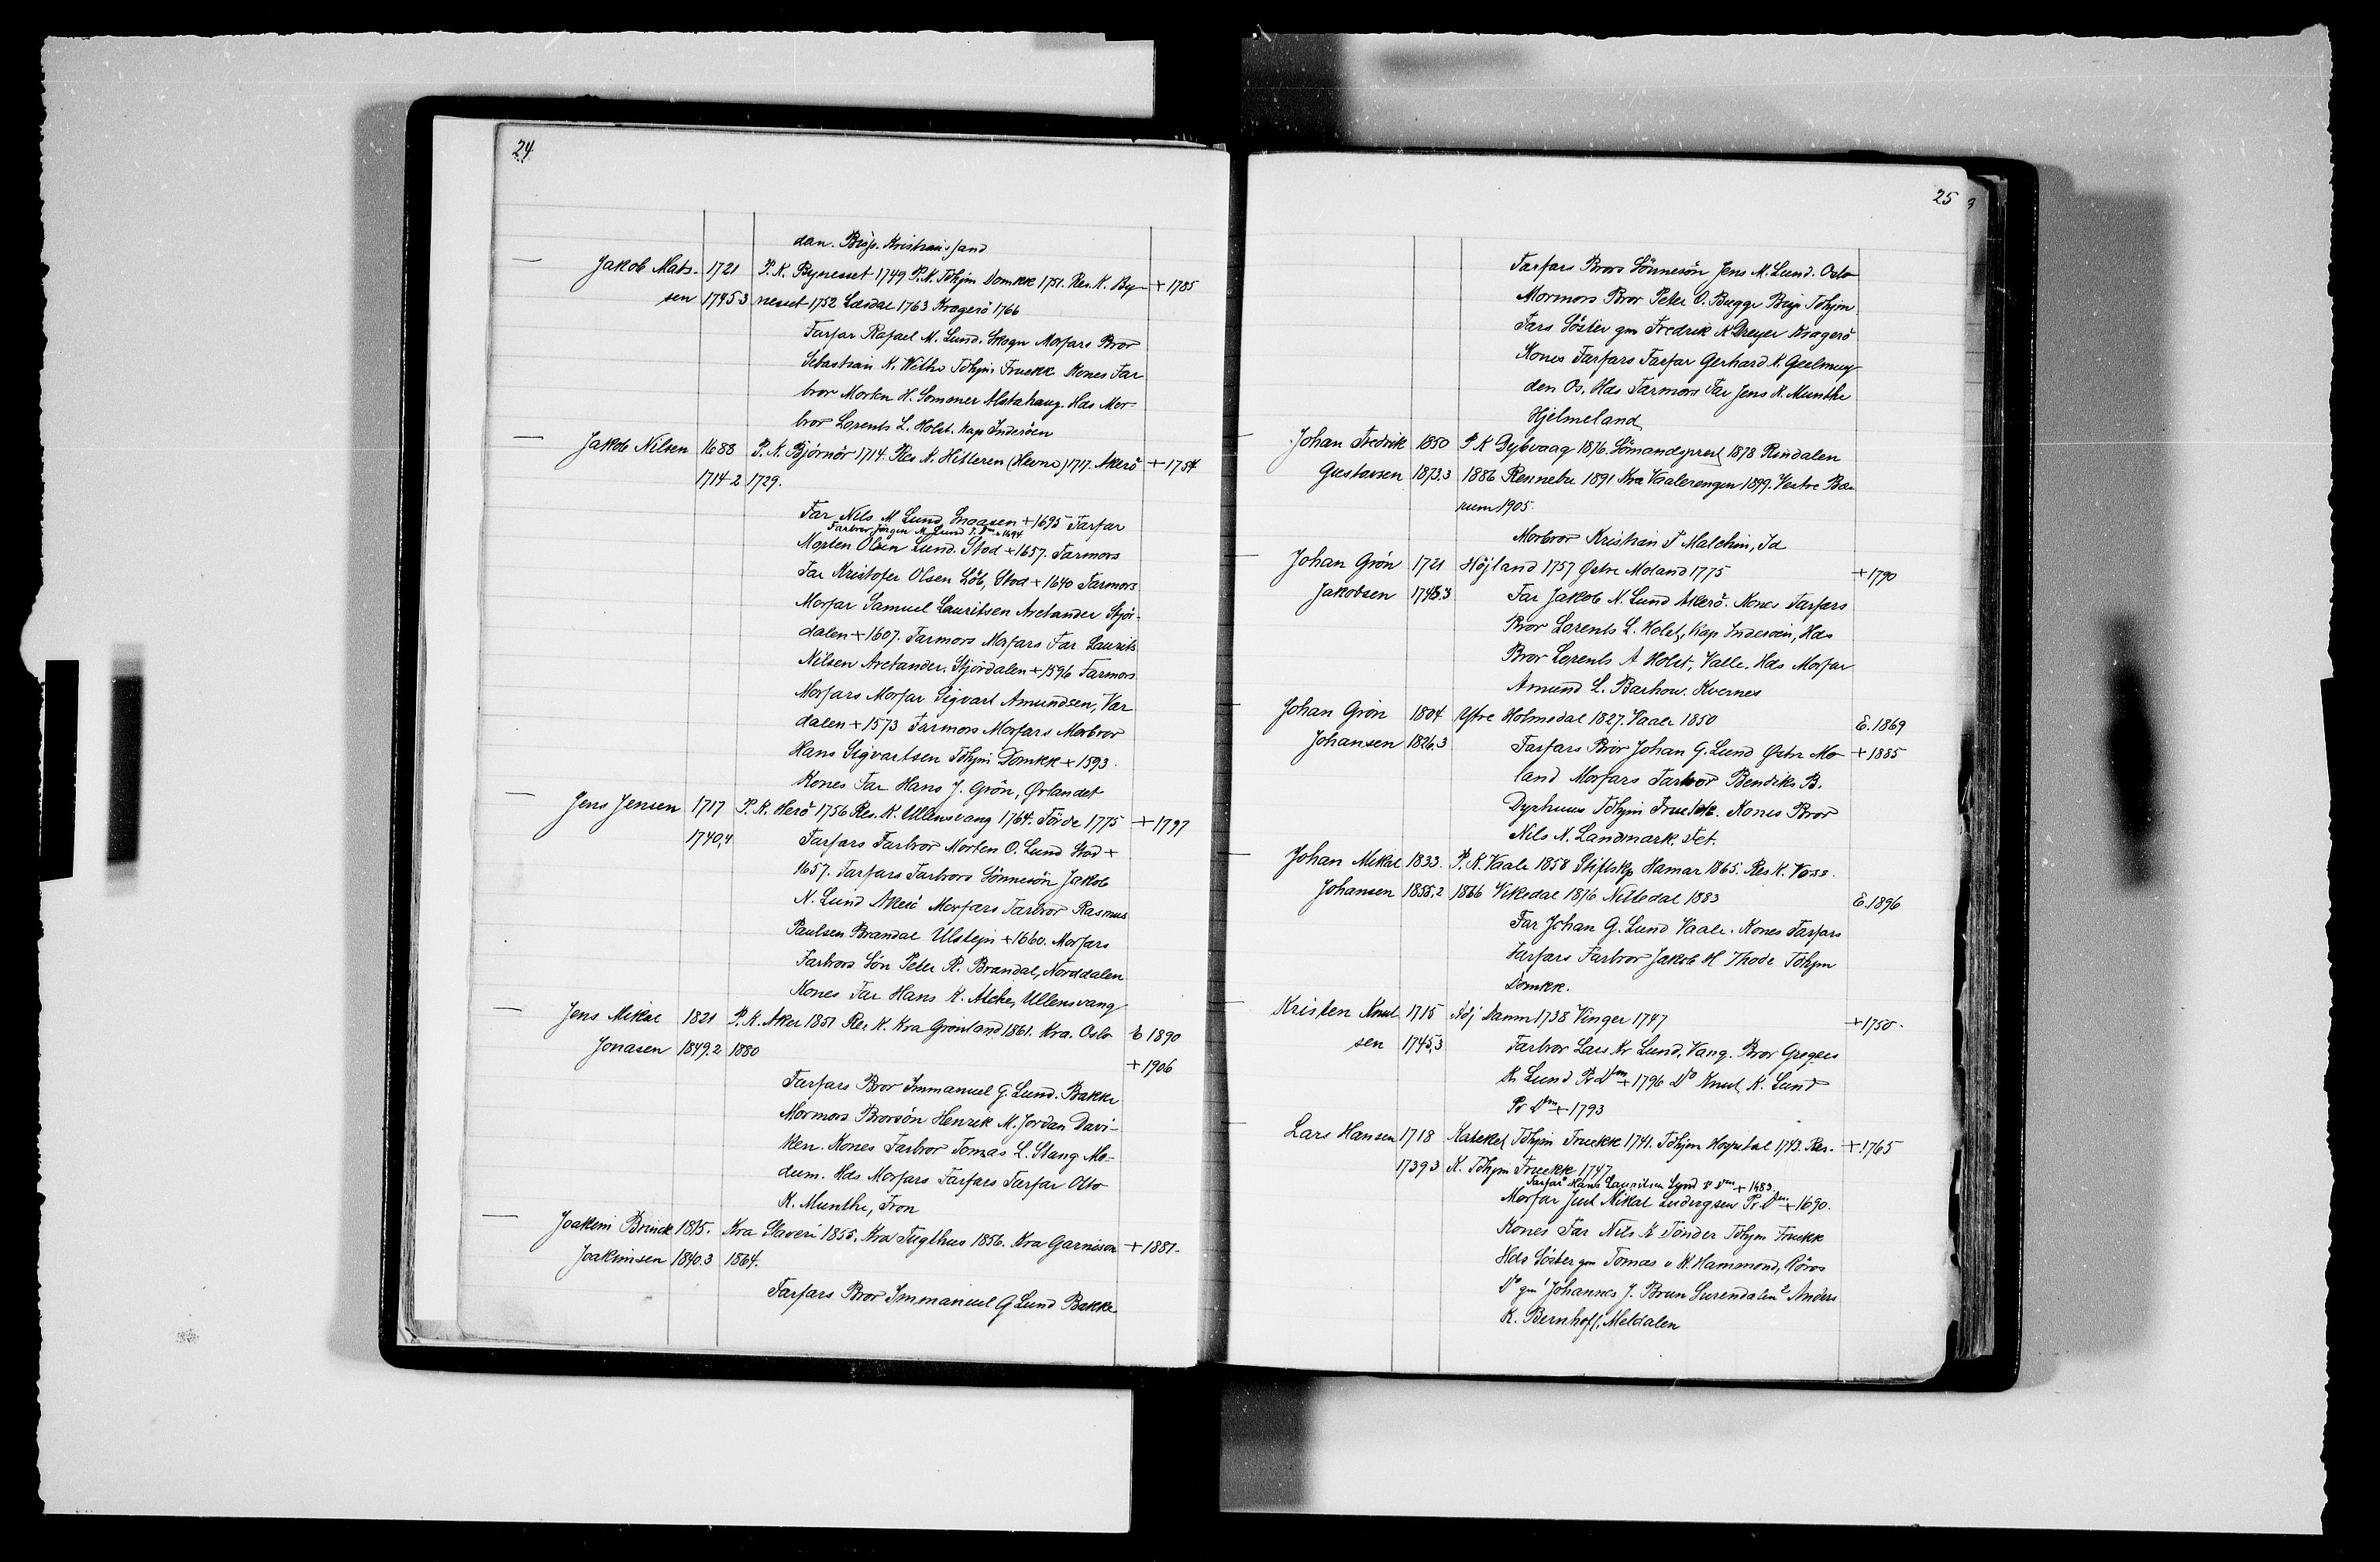 24
dan. Bisp. Kristiansand
— Jakob Mats- 1721 P. K. Bynesset 1749 P. K. Tdhjm Domkk 1751. Res. K. By- + 1785
sen 1745.3 nesset 1752 Lærdal 1763 Kragerö 1766
Farfar Rafael M. Lund. Skogn Morfars Bror
Sebastian N. Withe Tdhjm Fruekk Kones Far
bror Morten H. Sommer Alstahaug. Hds Mor-
bror Lorents L. Holst. Kap Inderöen
— Jakob Nilsen 1688 P. K. Björnör 1714. Res K. Hitteren (Hevne) 1717. Akerö + 1754
1714-2 1729.
Far Nils M Lund Snaasen + 1695 Farfar
Farbror Jörgen M Lund + 1694
Morten Olsen Lund. Stod + 1657. Farmors
Far Kristofer Olsen Löb, Stod + 1640 Farmors
Morfar Samuel Lauritsen Aretander Stjör-
dalen + 1607. Farmors Morfars Far Laurits
Nilsen Aretander. Stjördalen + 1596 Farmors
Morfars Morfar Sigvart Amundsen, Vær
dalen + 1573 Farmors Morfars Morbror
Hans Sigvartsen Tdhjm Domkk + 1593.
Kones Far Hans J. Grön, Ørlandet
— Jens Jensen 1717 P. K. Herö 1756 Res. K. Ullensvang 1764. Förde 1775 + 1797
1740,4 Farfars Farbror Morten O. Lund Stod +
1657. Farfars Farbrors Sönnesön Jakob
N. Lund Akerö Morfars Farbror Rasmus
Paulsen Brandal Ulstejn + 1660. Morfars
Farbrors Sön Peter R. Brandal, Norddalen
Kones Far Hans K. Atche, Ullensvang
— Jens Mikal 1821 P. K. Aker 1851 Res K. Kra Grönland 1861. Kra. Oslo E 1890
Jonasen 1849.2 1880 + 1906
Farfars Bror Immanuel G. Lund. Bakke
Mormors Brorsön Henrik M. Jordan Davi-
ken. Kones Farbror Tomas L. Stang Mo-
dum. Hds Morfars Farfars Farfar Otto
K. Munthe, Fron
— Joakim Brinck 1815. Kra Slaveri 1855. Kra Tugthus 1856. Kra Garnison + 1881.
Joakimsen 1840.3 1864.
Farfars Bror Immanuel G Lund Bakke
25
Farfars Brors Sönnesön Jens M. Lund. Oslo
Mormors Bror Peter O. Bugge Bisp Tdhjm
Fars Söster gm Fredrik K Dreyer Kragerö
Kones Farfars Farfar Gerhard K. Geelmuy-
den Os. Hds Farmors Far Jens K. Munthe
Hjelmeland
— Johan Fredrik 1850 P K Dybvaag 1876. Sömandsprest 1878 Rindalen
Gustavsen 1873.3 1886 Rennebu 1891 Kra Vaalerengen 1899. Vestre Bæ-
rum 1905.
Morbror Kristian F Malchin, Id
— Johan Grön 1721 Höjland 1757 Østre Moland 1775 + 1790
Jakobsen 1745.3 Far Jakob N. Lund Akerö. Kones Farfars
Bror Lorents L. Holst, Kap Inderöen, Hds
Bror Lorents A Holst, Valle. Hds Morfar
Amund L. Barhow. Kvernes
Johan Grön 1804 Ytre Holmedal 1827. Vaale 1850 E. 1869
Johansen 1826.3 Farfars Bror Johan G. Lund Østre Mo- + 1885
land Morfars Farbror Bendiks B.
Dyrhuus Tdhjm Fruekk. Kones Bror
Nils N. Landmark. Fet.
— Johan Mikal 1833. P. K. Vaale 1858 Stiftskp Hamar 1865. Res K. Voss
Johansen 1855,2 1866 Vikedal 1876 Nittedal 1883 E. 1896
Far Johan G. Lund Vaale. Kones Farfars
Farfars Farbror Jakob H Thode Tdhjm
Domkk.
— Kristen Knut 1715 Adj Vanm 1738 Vinger 1747 + 1750.
sen 1745,3 Farbror Lars Kr Lund, Vang. Bror Gregers
K Lund Pr Dm + 1796 Do Knut K. Lund
Pr Dm + 1793
— Lars Hansen 1718 Kateket Tdhjm Fruekk 1741. Tdhjm Hospital 1743. Res. + 1765
1739 3 K. Tdhjm Fruekk 1747
Farfar Hans Lauritsen Lund + 1683.
Morfar Just Mikal Ludvigsen Pr Dm + 1690.
Kones Far Nils K Tönder Tdhjm Fruekk
Hds Söster gm Tomas v W. Hammond, Röros
Do gm 1 Johannes J. Brun Surendalen 2 Anders
K. Bernhoft, Meldalen